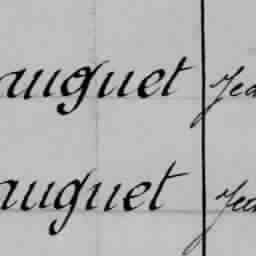 auguet Jea
auguet Jea